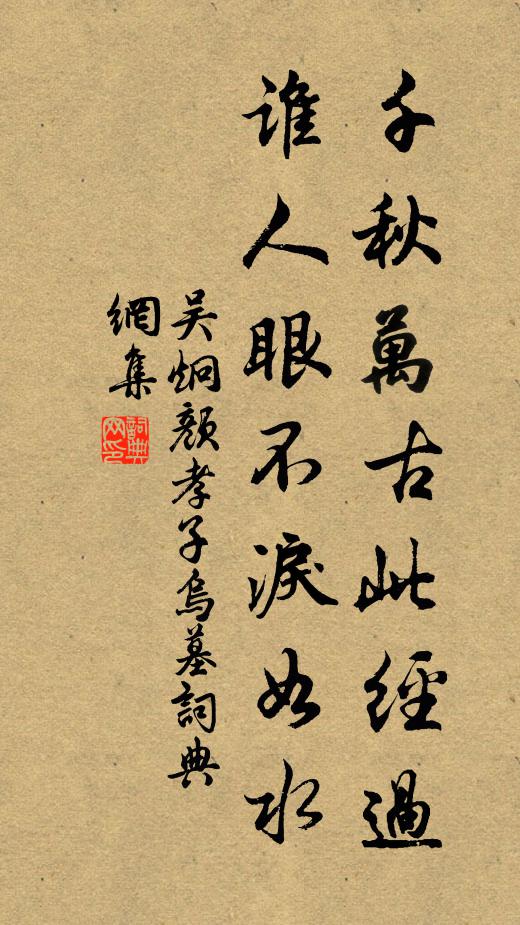 千秋萬古此經過
誰人眼不淚如水
吴炯顏孝子烏墓詞典
網集
詞典
网印